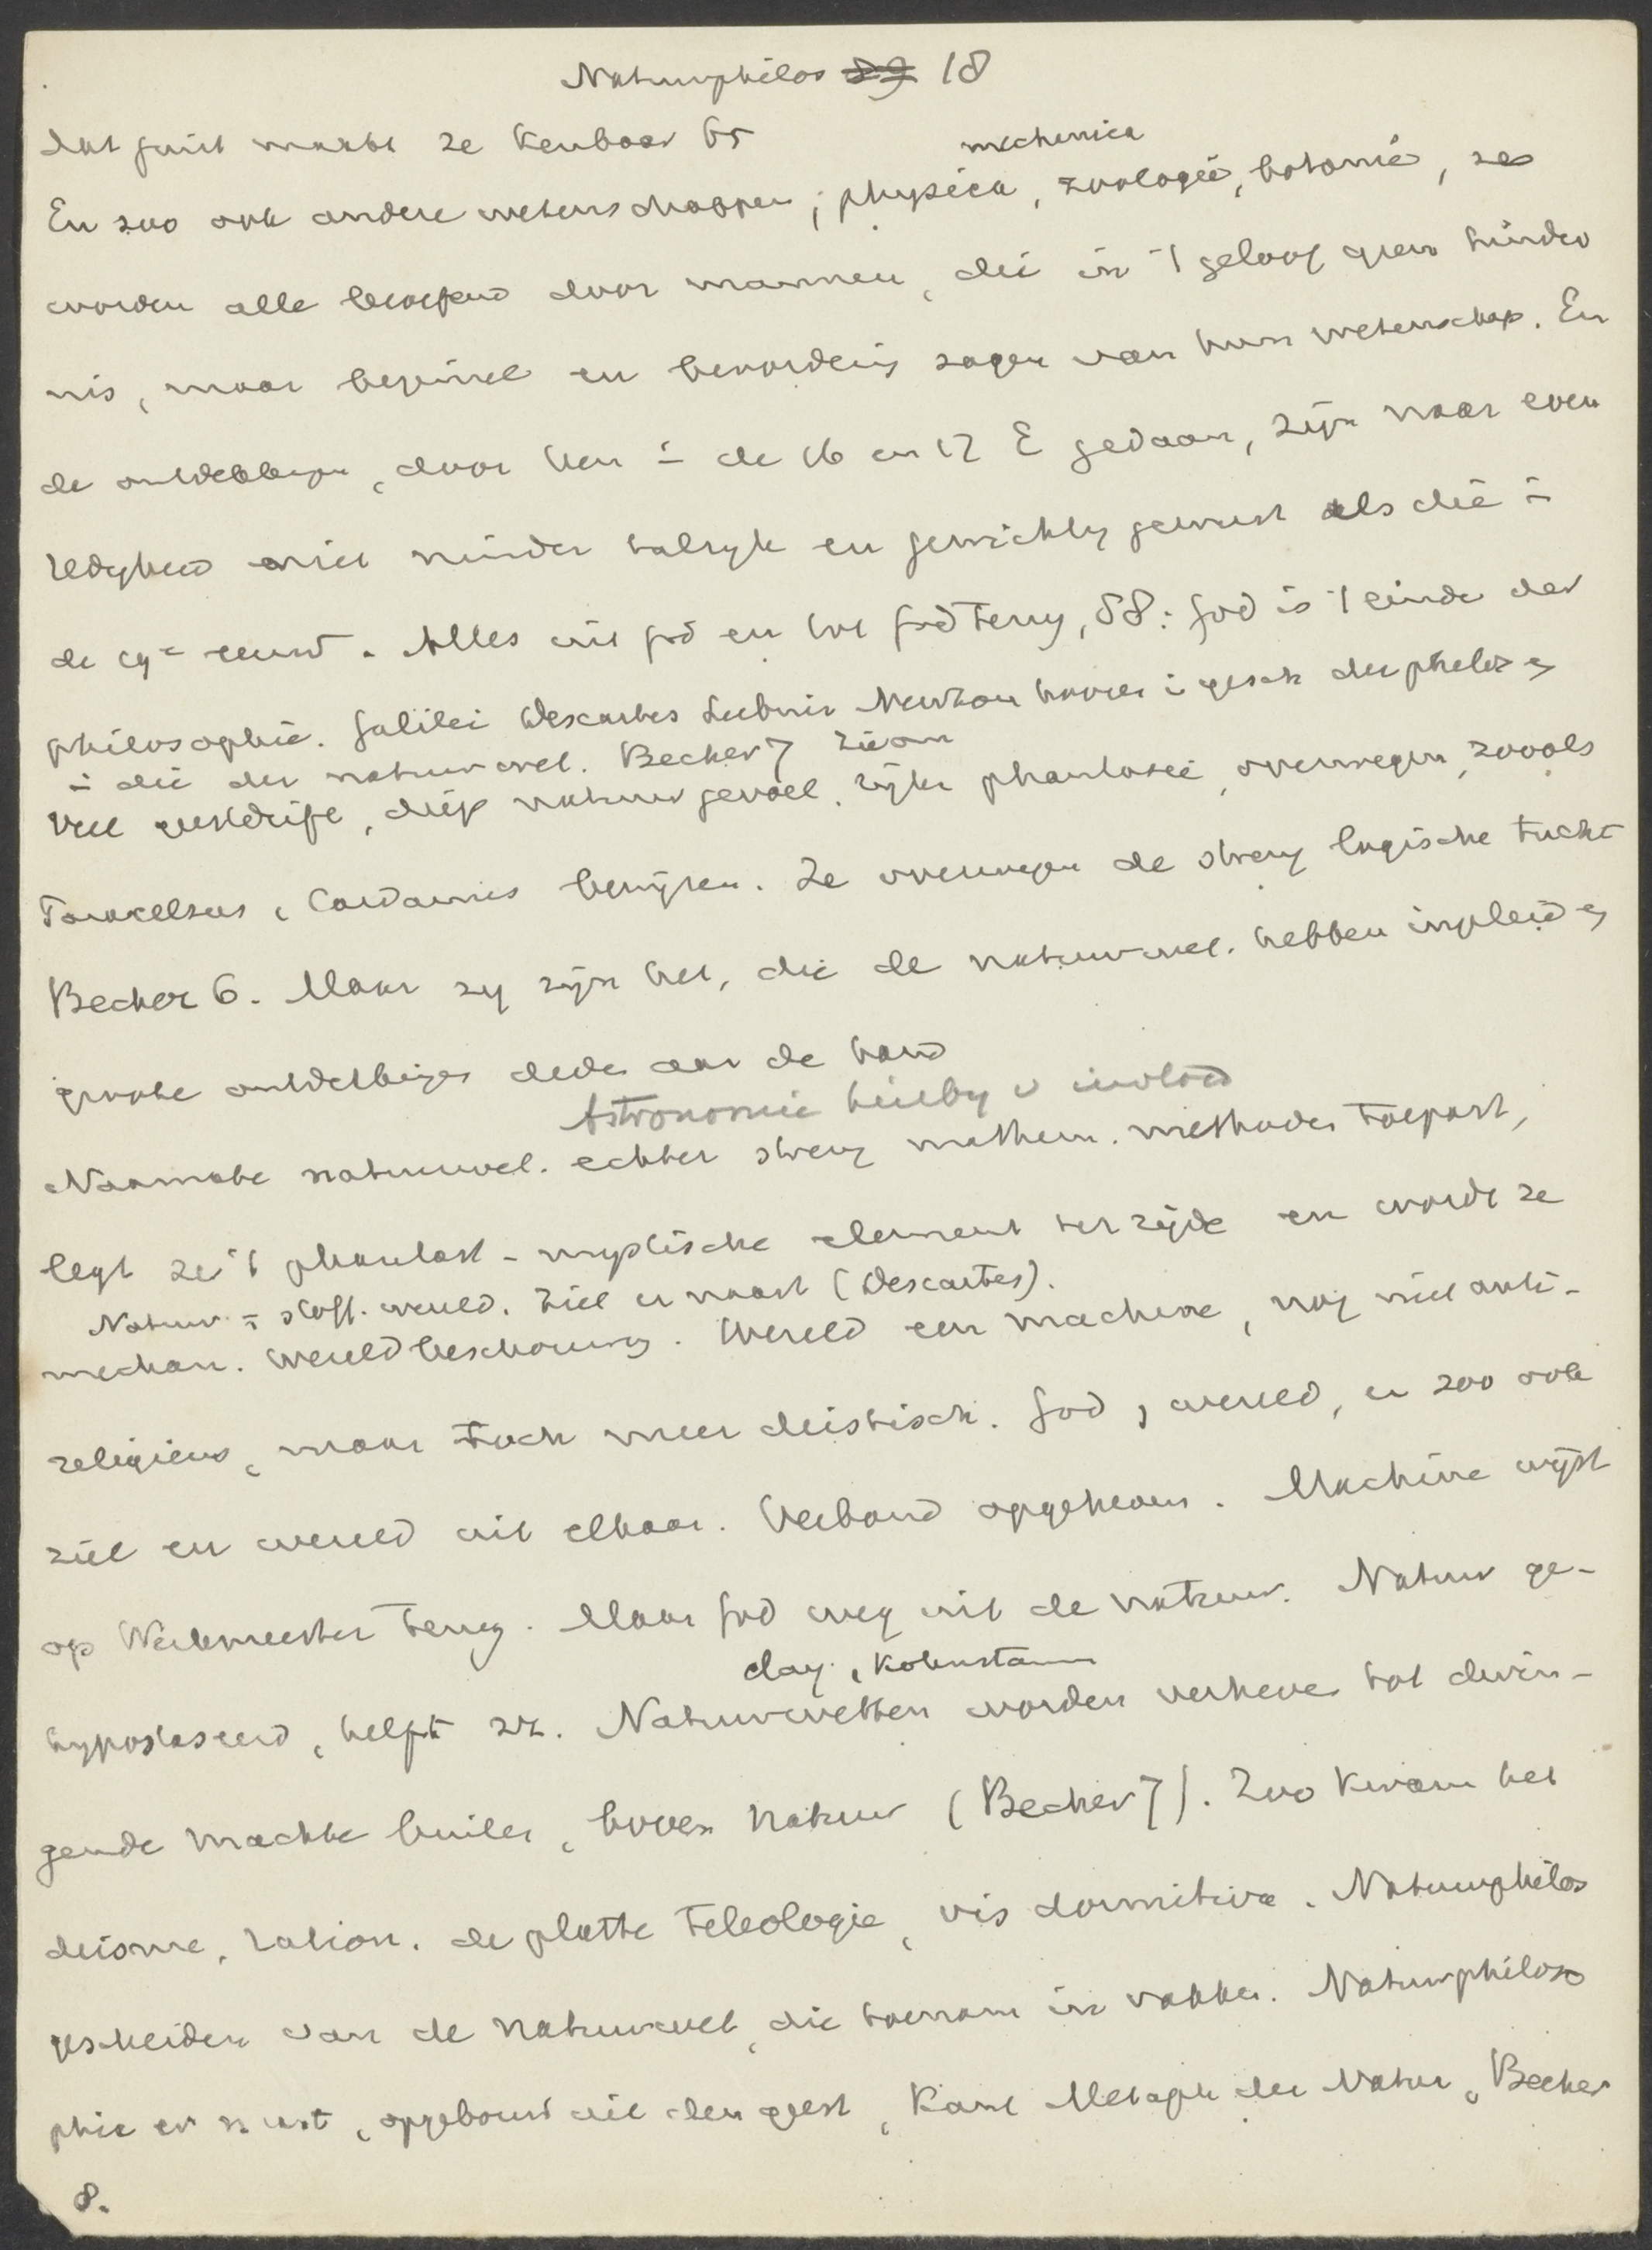 Natuurphilos 18
dat juist maakt ze kenbaar 65
mechanica
En zoo ook andere wetenschappen; physica, zoologie, botanie, ze
worden alle beoefend door mannen, die in 't geloof geen hinder
nis, maar beginsel en bevordering zagen van hun wetenschap. En
de ontdekkingen, door hen in de 16 en 17 E gedaan, zijn naar even
redigheid niet minder talryk en gewichtig geweest als die in
de 19e eeuw. Alles uit God en tot God terug, 58: God is 't einde der
philosophie. Galilei Descartes Leibniz Newton hooren in gesch der philos en
in die der natuurwet. Becher 7
Veel geestdrift, diep natuurgevoel, rijke phantasie, overwegen, zooals
Paracelsus, Cardanus bewijzen. Ze overwegen de streng logische tucht
Becher 6. Maar zy zijn het, die de natuurwet. hebben ingeleid en
groote ontdekkingen deden aan de hand
Astronomie hierby v invloed
Naarmate natuurwet. echter streng mathem. methodes toepast,
legt ze 't phantast-mystische element ter zijde en wordt ze
Natuur = stoff. wereld. Ziel er naast (Descartes).
mechan. wereldbeschouwing. Wereld een machine, nog niet anti-
religieus, maar toch meer deistisch. God, wereld, en zoo ook
ziel en wereld uit elkaar. Verband opgeheven. Machine wijst
op Werkmeester terug. Maar God weg uit de natuur. Natuur ge-
Clay, Kohnstamm
hypostaseerd, helpt zich. Natuurwetten worden verheven tot dwin-
gende machten buiten, boven natuur (Becher 7). Zoo kwam het
deisme, ration. de platte teleologie, vis dormitiva. Natuurphilos
gescheiden van de natuurwet, die toenam in vakken. Natuurphiloso
phie er naast, opgebouwd uit den geest, Kant Metaph der Natur, Becher
8.